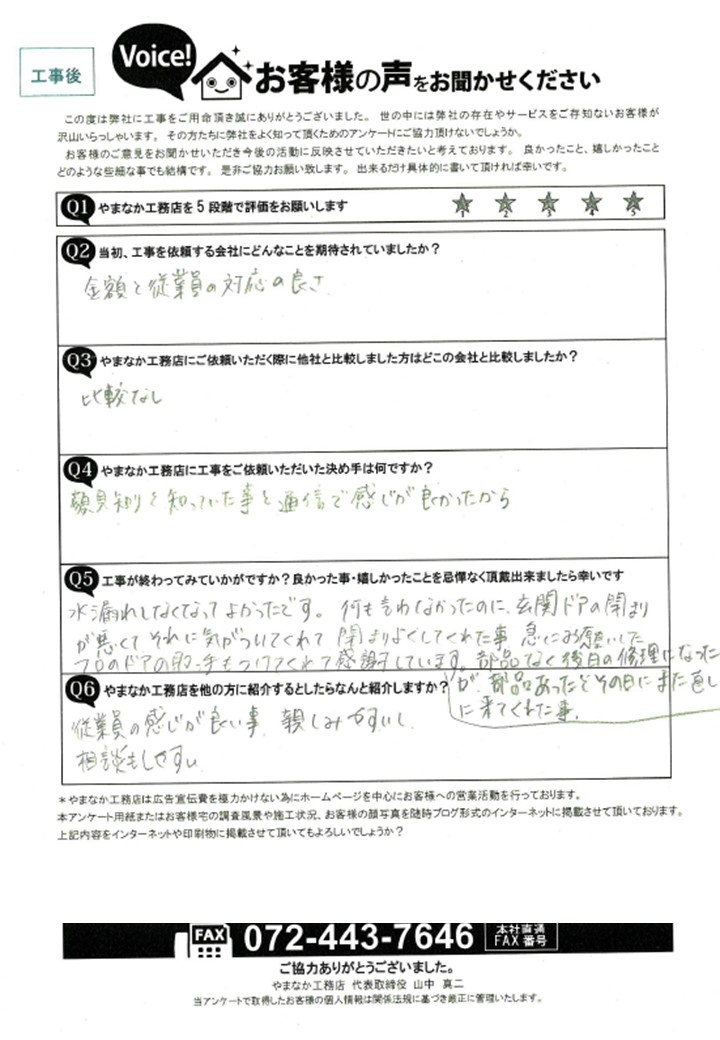 工事後
Voice!
お客様の声をお聞かせください
この度は弊社に工事をご用命頂き誠にありがとうございました。 世の中には弊社の存在やサービスをご存知ないお客様が
沢山いらっしゃいます。 その方たちに弊社をよく知って頂くためのアンケートにご協力頂けないでしょうか。
お客様のご意見をお聞かせいただき今後の活動に反映させていただきたいと考えております。 良かったこと、嬉しかったこと
どのような些細な事でも結構です。 是非ご協力お願い致します。 出来るだけ具体的に書いて頂ければ幸いです。
Q1 やまなか工務店を5段階で評価をお願いします
1 2 3 4 5
Q2 当初、工事を依頼する会社にどんなことを期待されていましたか?
金額と従業員の対応の良さ
Q3 やまなか工務店にご依頼いただく際に他社と比較しました方はどこの会社と比較しましたか?
比較なし
Q4 やまなか工務店に工事をご依頼いただいた決め手は何ですか?
顔見知りを知っていた事と通信で感じが良かったから
Q5 工事が終わってみていかがですか?良かった事・嬉しかったことを忌憚なく頂戴出来ましたら幸いです
水漏れしなくなってよかったです。 何も言わなかったのに、玄関ドアの閉まり
が悪くてそれに気がついてくれて閉まりよくしてくれた事 急にお願いした
フロのドアの取っ手もつけてくれて感謝しています。部品なく後日の修理になった
が、部品あったとその日にまた直し
に来てくれた事。
Q6 やまなか工務店を他の方に紹介するとしたらなんと紹介しますか?
従業員の感じが良い事 親しみやすいし
相談もしやすい
*やまなか工務店は広告宣伝費を極力かけない為にホームページを中心にお客様への営業活動を行っております。
本アンケート用紙またはお客様宅の調査風景や施工状況、お客様の顔写真を随時ブログ形式のインターネットに掲載させて頂いております。
上記内容をインターネットや印刷物に掲載させて頂いてもよろしいでしょうか?
FAX 072-443-7646 本社直通
FAX番号
ご協力ありがとうございました。
やまなか工務店 代表取締役 山中 真二
当アンケートで取得したお客様の個人情報は関係法規に基づき厳正に管理いたします。